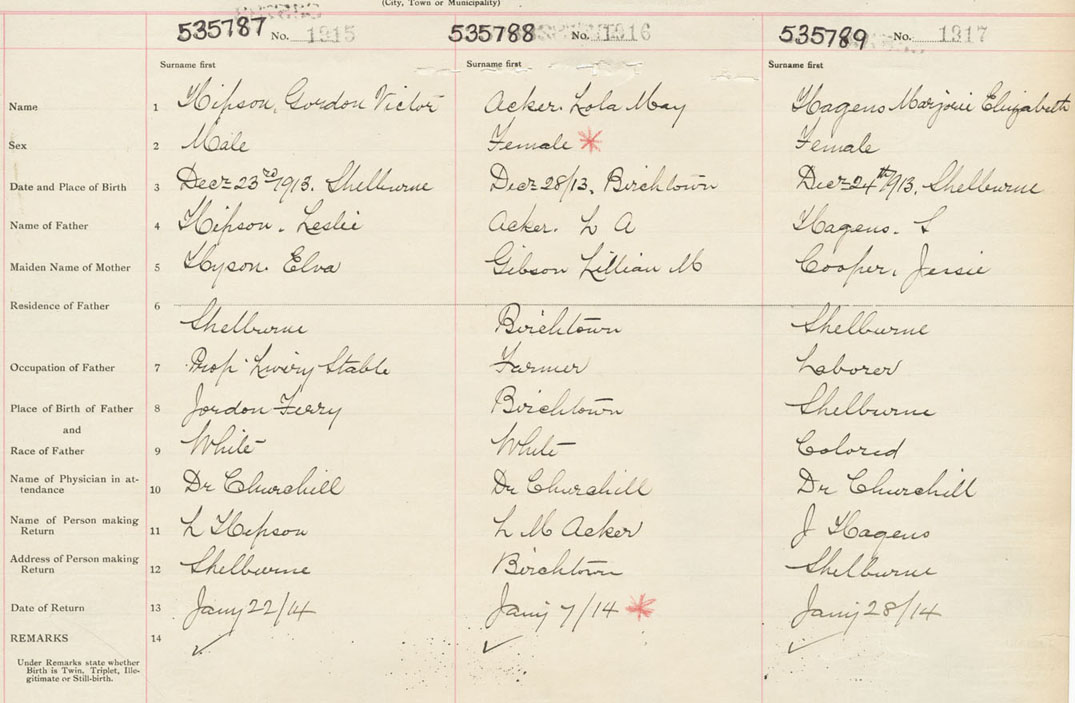 (City, Town or Municipality)
535787 No. 1315 535788 No. 1316 535789 No. 1317
Surname first Surname first Surname first
Name 1 Hipson, Gordon Victor Acker. Lola May Hagens Marjorie Elizabeth
Sex 2 Male Female * Female
Date and Place of Birth 3 Decr 23rd 1913. Shelburne Decr 28/13. Birchtown Decr 24th 1913, Shelburne
Name of Father 4 Hipson. Leslie Acker. L A Hagens. S
Maiden Name of Mother 5 Hyson. Elva Gibson Lillian M Cooper, Jessie
Residence of Father 6
Shelburne Birchtown Shelburne
Occupation of Father 7 Prop Livery Stable Farmer Laborer
Place of Birth of Father 8 Jordon Ferry Birchtown Shelburne
and
Race of Father 9 White White Colored
Name of Physician in at-
tendance 10 Dr Churchill Dr Churchill Dr Churchill
Name of Person making
Return 11 L Hipson L M Acker J Hagens
Address of Person making
Return 12 Shelburne Birchtown Shelburne
Date of Return 13 Jany 22/14 Jany 7/14 * Jany 28/14
REMARKS 14 ✓ ✓ ✓
Under Remarks state whether
Birth is Twin, Triplet, Ille-
gitimate or Still-birth.